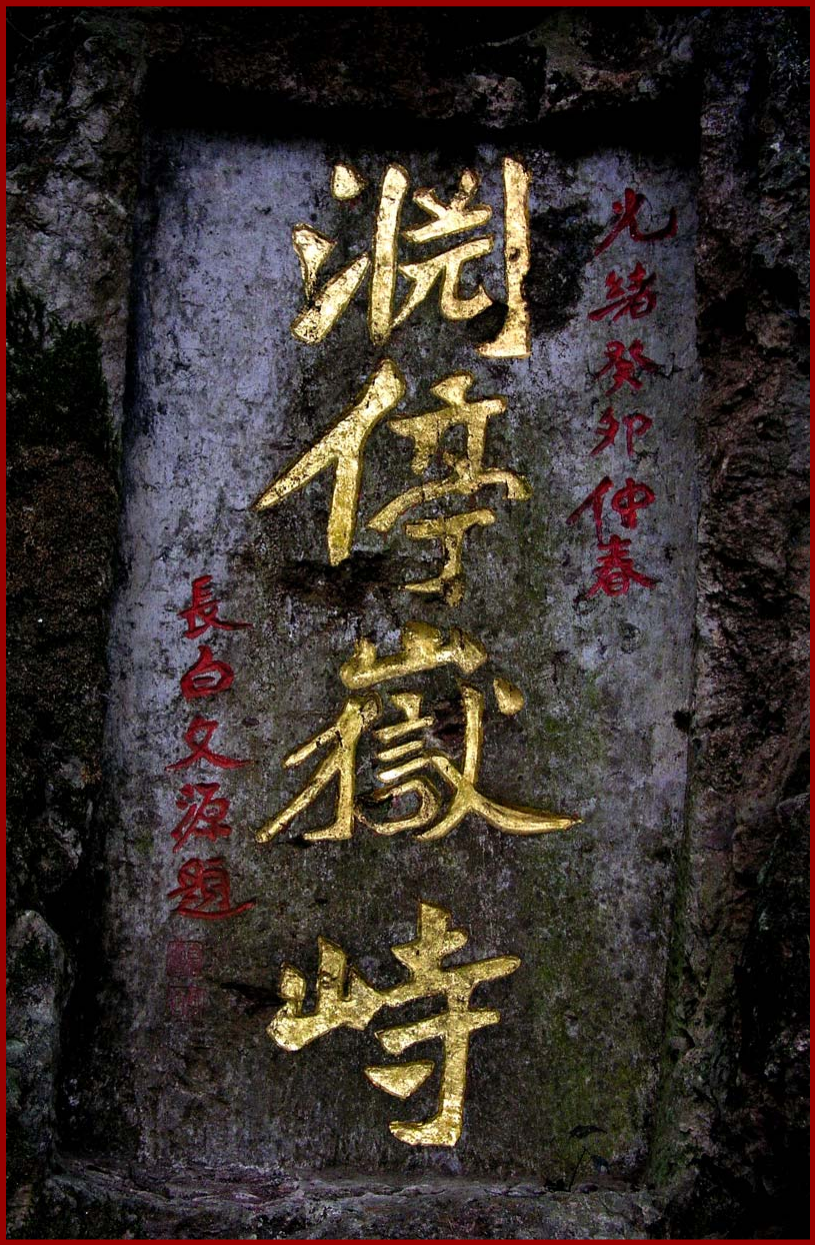 光緒癸卯仲春
淵停嶽峙
長白文源題